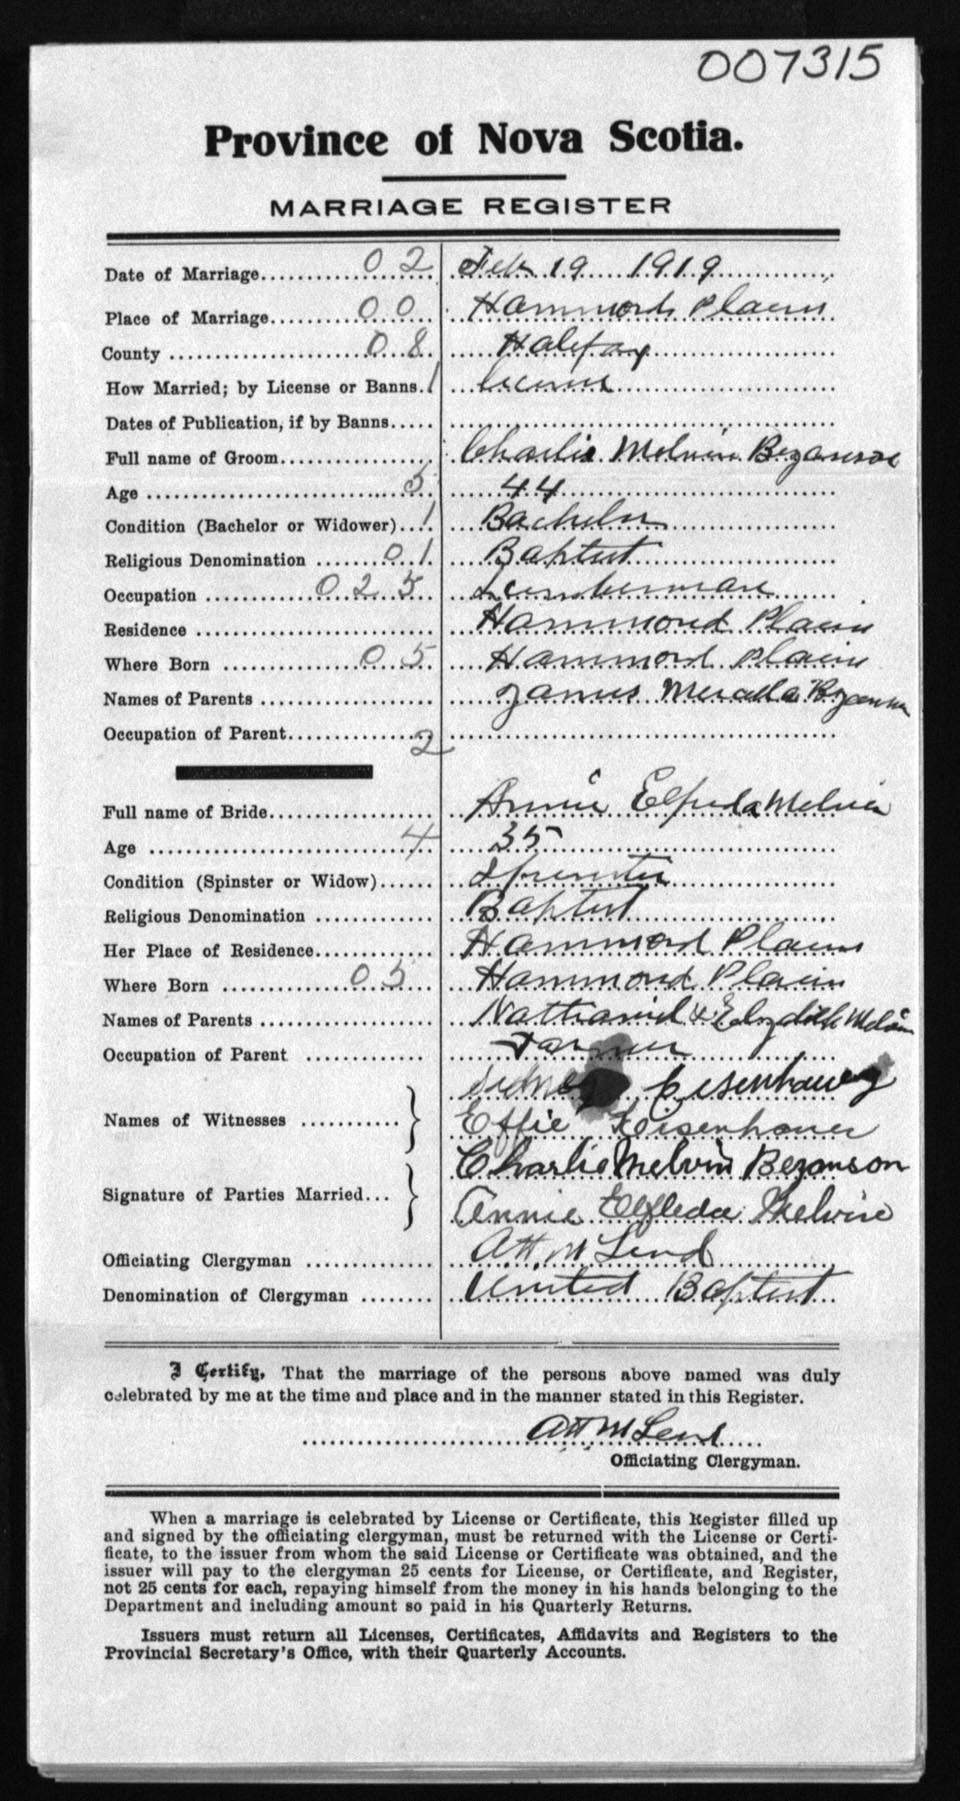 007315
Province of Nova Scotia.
MARRIAGE REGISTER
Date of Marriage 02 Feb 19 1919
Place of Marriage 00 Hammonds Plains
County 08 Halifax
How Married; by License or Banns. 1 license
Dates of Publication, if by Banns
Full name of Groom Charlie Melvin Bezanson
Age 5 44
Condition (Bachelor or Widower) 1 Bachelor
Religious Denomination 01 Baptist
Occupation 025 Lumberman
Residence Hammond Plains
Where Born 05 Hammond Plains
Names of Parents James Bezanson
Occupation of Parent 2
Full name of Bride Annie Elfreda Melvin
Age 4 35
Condition (Spinster or Widow) Spinster
Religious Denomination Baptist
Her Place of Residence Hammond Plains
Where Born 05 Hammond Plains
Names of Parents Nathaniel & Melvin
Occupation of Parent Farmer
Names of Witnesses Sidney Eisenhauer
Effie Eisenhauer
Signature of Parties Married Charlie Melvin Bezanson
Annie Elfleda Melvin
Officiating Clergyman
Denomination of Clergyman United Baptist
I Certify, That the marriage of the persons above named was duly
celebrated by me at the time and place and in the manner stated in this Register.
Officiating Clergyman.
When a marriage is celebrated by License or Certificate, this Register filled up
and signed by the officiating clergyman, must be returned with the License or Certi-
ficate, to the issuer from whom the said License or Certificate was obtained, and the
issuer will pay to the clergyman 25 cents for License, or Certificate, and Register,
not 25 cents for each, repaying himself from the money in his hands belonging to the
Department and including amount so paid in his Quarterly Returns.
Issuers must return all Licenses, Certificates, Affidavits and Registers to the
Provincial Secretary's Office, with their Quarterly Accounts.